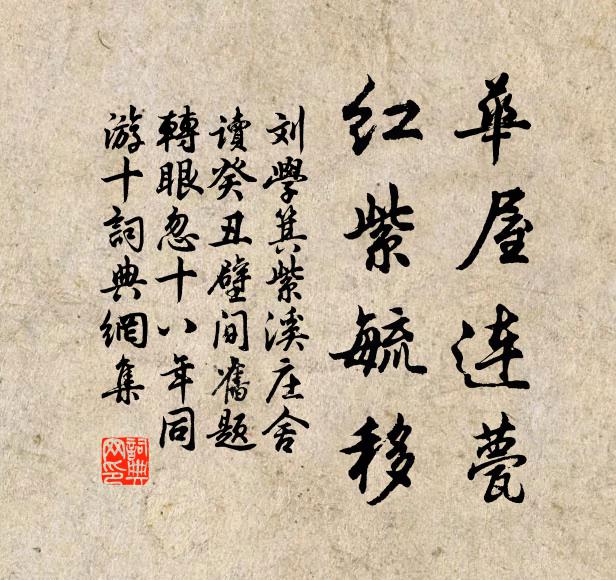 華屋連薨
红紫毓移
刘學箕紫溪庄舍
讀癸丑壁间舊题
轉眼忽十八年同
游十詞典網集
詞典网印